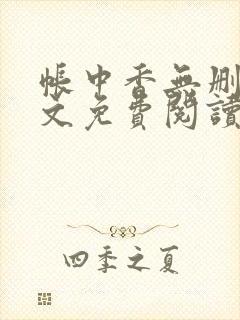 帳中香無刪
文免費閱讀
四季之夏